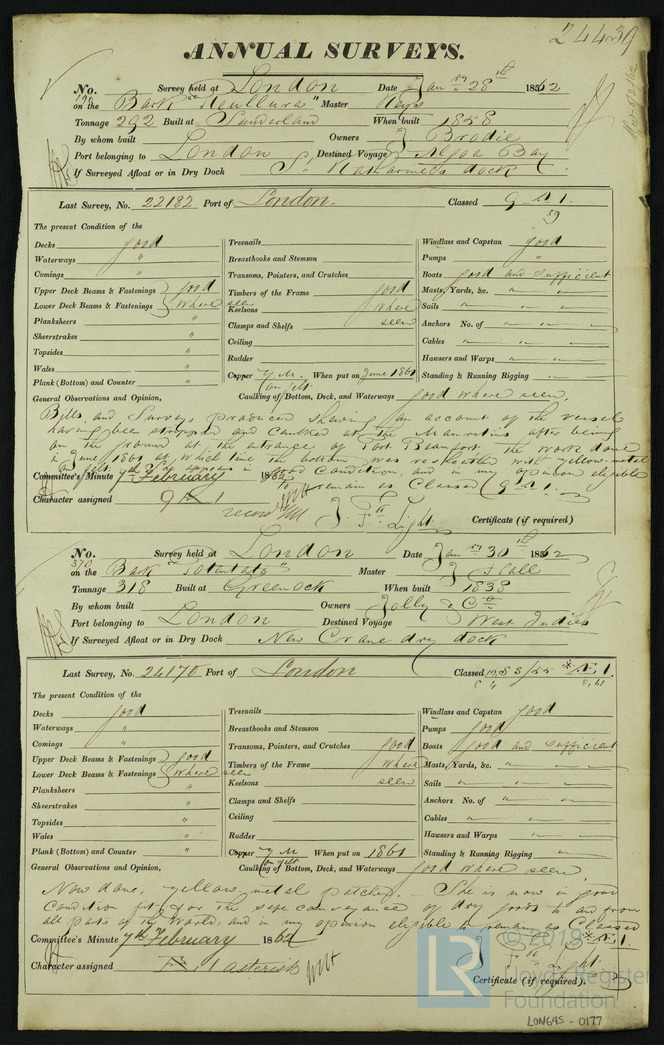 24439
ANNUAL SURVEYS.
No. Survey held at London Date Jan ry 28th 1862
on the Bark "Reullura" Master Keys
Tonnage 292 Built at Sunderland When built 1858
By whom built Owners J Brodie
Port belonging to London Destined Voyage Algoa Bay
If Surveyed Afloat or in Dry Dock St Katharine's dock
Last Survey, No. 22182 Port of London. Classed 9 A 1.
59
The present Condition of the
Decks good
Waterways "
Comings "
Upper Deck Beams & Fastenings good
Lower Deck Beams & Fastenings where seen
Planksheers "
Sheerstrakes "
Topsides "
Wales "
Plank (Bottom) and Counter "
Treenails
Breasthooks and Stemson
Transoms, Pointers, and Crutches
Timbers of the Frame good
Keelsons where
Clamps and Shelfs seen
Ceiling
Rudder
Copper Y.M. When put on June 1861
on felt
Windlass and Capstan good
Pumps "
Boats good and sufficient
Masts, Yards, &c. " " "
Sails " " "
Anchors No. of " " "
Cables " " "
Hawsers and Warps " " "
Standing & Running Rigging " "
General Observations and Opinion, Caulking of Bottom, Deck, and Waterways good where seen.
Bills and Surveys produced shewing an account of the vessel
having been stripped and caulked at the Mauritius after being
on the ground at the entrance of Port Beaufort, the work done
in June 1861 at which time the bottom was resheathed with yellow metal
on felt. She appears in good condition, and in my opinion eligible
to remain as Classed (9 A 1.
Committee's Minute 7th February 1862
Character assigned 9 A 1
J. F. Light
Certificate (if required)
No. Survey held at London Date Jan ry 30th 1862
370
on the Bark "Potentate" Master J Hall
Tonnage 318 Built at Greenock When built 1838
By whom built Owners Jolly & Co
Port belonging to London Destined Voyage West Indies
If Surveyed Afloat or in Dry Dock New Crane dry dock
Last Survey, No. 24170 Port of London Classed
The present Condition of the
Decks good
Waterways "
Comings "
Upper Deck Beams & Fastenings good
Lower Deck Beams & Fastenings where seen
Planksheers "
Sheerstrakes "
Topsides "
Wales "
Plank (Bottom) and Counter "
Treenails
Breasthooks and Stemson
Transoms, Pointers, and Crutches good
Timbers of the Frame where
Keelsons seen
Clamps and Shelfs
Ceiling
Rudder
Copper Y M When put on 1861
on felt
Windlass and Capstan good
Pumps good
Boats good and sufficient
Masts, Yards, &c. " " "
Sails " " "
Anchors No. of " " "
Cables " " "
Hawsers and Warps " " "
Standing & Running Rigging " "
General Observations and Opinion, Caulking of Bottom, Deck, and Waterways good where seen
Now done, yellow metal patched. She is now in good
Condition fit for the safe conveyance of dry goods to and from
all parts of the World, and in my opinion eligible to remain as Classed
Committee's Minute 7th February 1862
Character assigned 1 asterisk
J. F. Light
Certificate (if required).
LR © 2019
Lloyd's Register
Foundation
LON645 - 0177